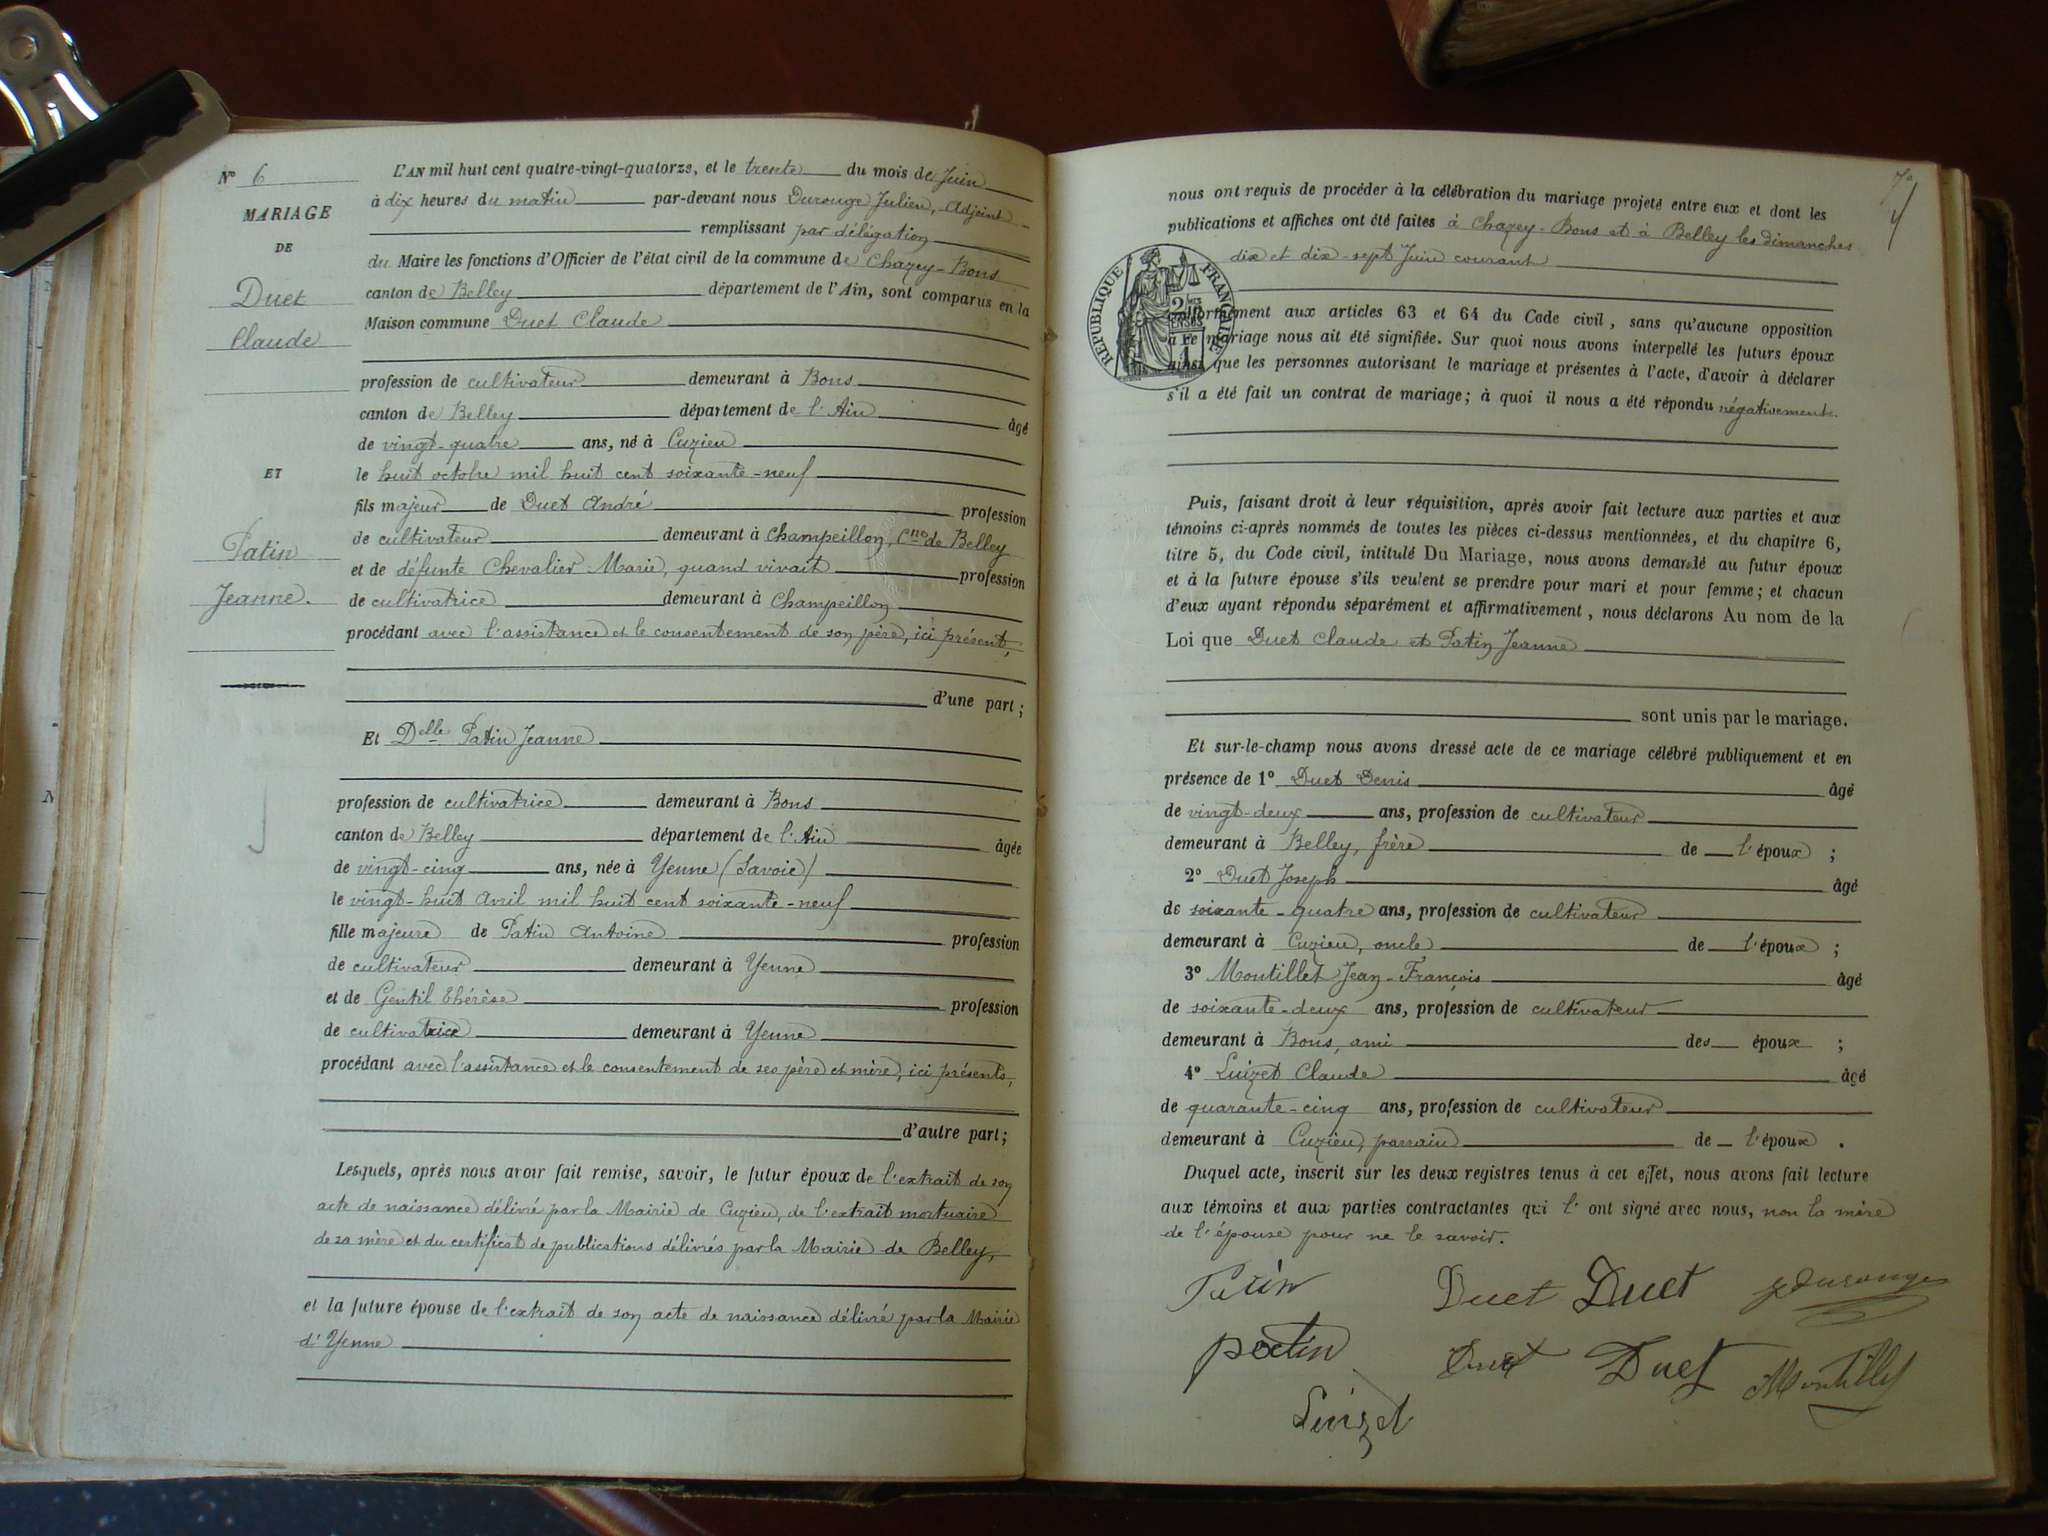 N° 6
MARIAGE
DE
Duet
Claude
ET
Patin
Jeanne.
L'AN mil huit cent quatre-vingt-quatorze, et le trente du mois de Juin
à dix heures du matin par-devant nous Durouge Julien, Adjoint
remplissant par délégation
du Maire les fonctions d'Officier de l'état civil de la commune de Chazey-Bons
canton de Belley département de l'Ain, sont comparus en la
Maison commune Duet Claude
profession de cultivateur demeurant à Bons
canton de Belley département de l'Ain âgé
de vingt-quatre ans, né à Cuzieu
le huit octobre mil huit cent soixante-neuf
fils majeur de Duet André profession
de cultivateur demeurant à Champeillon, Cne de Belley
et de défunte Chevalier Marie, quand vivait profession
de cultivatrice demeurant à Champeillon
procédant avec l'assistance et le consentement de son père, ici présent,
d'une part ;
Et Delle Patin Jeanne
profession de cultivatrice demeurant à Bons
canton de Belley département de l'Ain âgée
de vingt-cinq ans, née à Yenne (Savoie)
le vingt-huit avril mil huit cent soixante-neuf
fille majeure de Patin Antoine profession
de cultivateur demeurant à Yenne
et de Gentil Thérèse profession
de cultivatrice demeurant à Yenne
procédant avec l'assistance et le consentement de ses père et mère, ici présents,
d'autre part ;
Lesquels, après nous avoir fait remise, savoir, le futur époux de l'extrait de son
acte de naissance délivré par la Mairie de Cuzieu, de l'extrait mortuaire
de sa mère et du certificat de publications délivrés par la Mairie de Belley,
et la future épouse de l'extrait de son acte de naissance délivré par la Mairie
d'Yenne
nous ont requis de procéder à la célébration du mariage projeté entre eux et dont les
publications et affiches ont été faites à Chazey-Bons et à Belley les dimanches
dix et dix-sept Juin courant
RÉPUBLIQUE FRANÇAISE
conformément aux articles 63 et 64 du Code civil, sans qu'aucune opposition
à ce mariage nous ait été signifiée. Sur quoi nous avons interpellé les futurs époux
ainsi que les personnes autorisant le mariage et présentes à l'acte, d'avoir à déclarer
s'il a été fait un contrat de mariage ; à quoi il nous a été répondu négativement.
Puis, faisant droit à leur réquisition, après avoir fait lecture aux parties et aux
témoins ci-après nommés de toutes les pièces ci-dessus mentionnées, et du chapitre 6,
titre 5, du Code civil, intitulé Du Mariage, nous avons demandé au futur époux
et à la future épouse s'ils veulent se prendre pour mari et pour femme ; et chacun
d'eux ayant répondu séparément et affirmativement, nous déclarons Au nom de la
Loi que Duet Claude et Patin Jeanne
sont unis par le mariage.
Et sur-le-champ nous avons dressé acte de ce mariage célébré publiquement et en
présence de 1° Duet Denis âgé
de vingt-deux ans, profession de cultivateur
demeurant à Belley, frère de l'époux ;
2° Duet Joseph âgé
de soixante-quatre ans, profession de cultivateur
demeurant à Cuzieu, oncle de l'époux ;
3° Montillet Jean-François âgé
de soixante-deux ans, profession de cultivateur
demeurant à Bons, ami des époux ;
4° Luizet Claude âgé
de quarante-cinq ans, profession de cultivateur
demeurant à Cuzieu, parrain de l'époux .
Duquel acte, inscrit sur les deux registres tenus à cet effet, nous avons fait lecture
aux témoins et aux parties contractantes qui l'ont signé avec nous, non la mère
de l'épouse pour ne le savoir.
Patin Duet Duet J Durouge
patin Duet Duet Montillet
Luizet